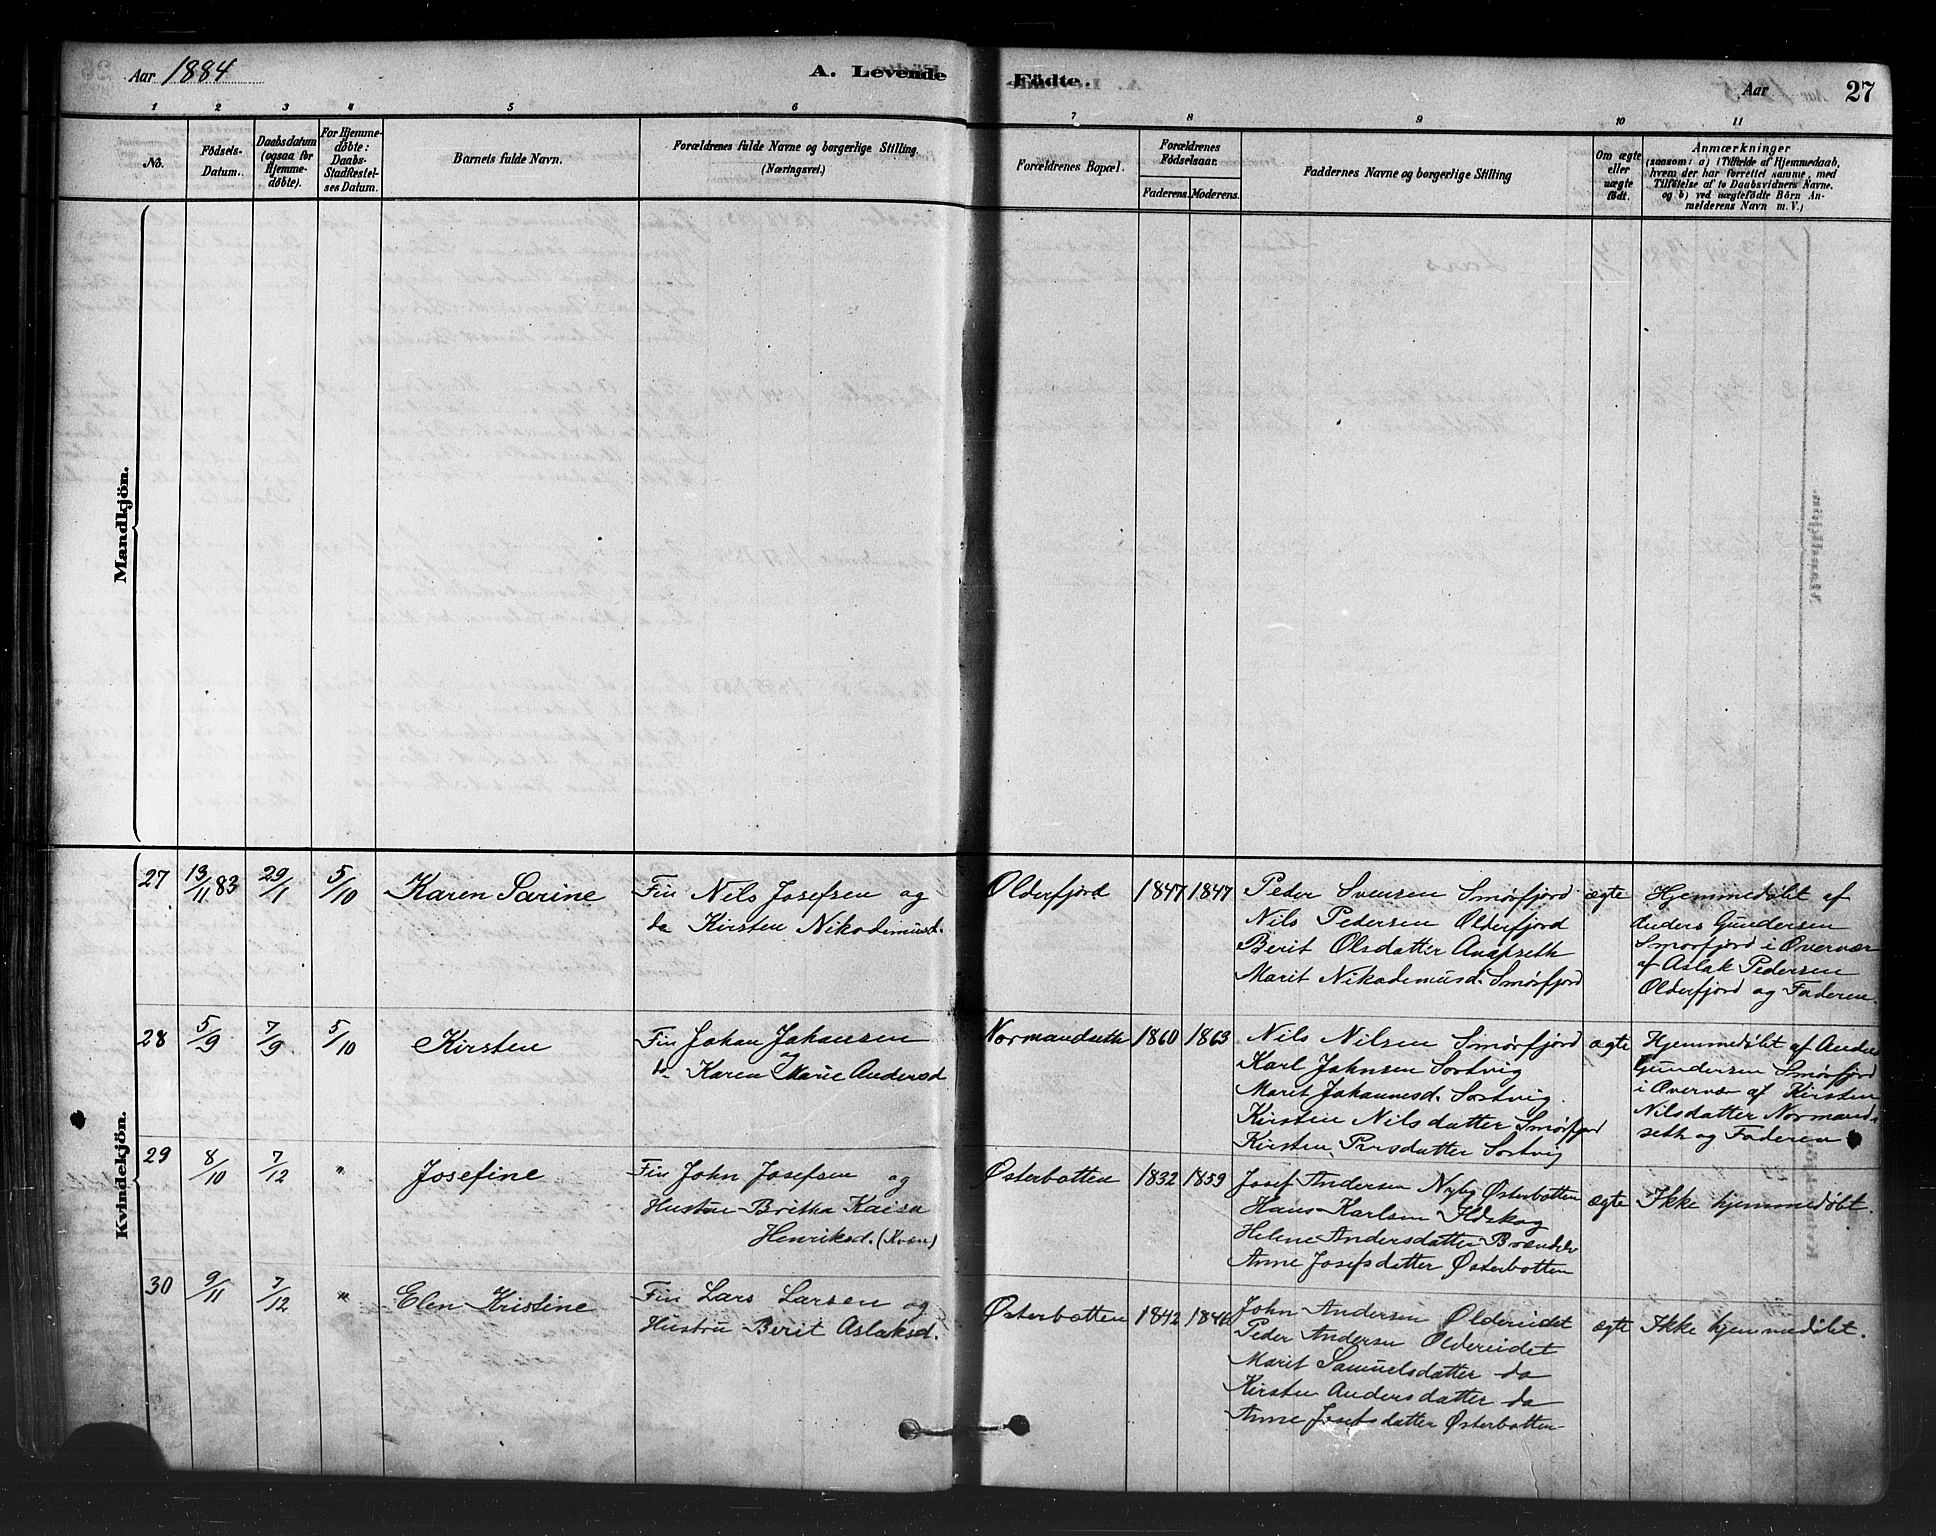 Aar 1884
A. Levende
Födte.
Aar
27
1 2 3 4 5 6 7 8 9 10 11
No.
Födsels-
Datum.
Daabsdatum
(ogsaa for
Hjemme-
döbte).
For Hjemme-
døbte:
Daabs-
Stadfæstel-
ses Datum.
Barnets fulde Navn.
Forældrenes fulde Navne og borgerlige Stilling.
(Næringsvei.)
Forældrenes Bopæl.
Forældrenes
Födselsaar.
Faderens. Moderens.
Faddernes Navne og borgerlige Stilling
Om ægte
eller
uægte
födt.
Anmærkninger
(saasom: a) i Tilfælde af Hjemmedaab,
hvem der har forrettet samme, med
Tilföielse af to Daabsvidners Navne.
og b) ved uægtefödte Börn An-
melderens Navn m. V.)
Mandkjön.
Kvindekjön.
27
13/11 83
29/1
5/10
Karen Sarine
Fin Nils Josefsen og
do Kirsten Nikodemusd.
Olderfjord
1847
1847
Peder Svensen Smørfjord
Nils Pedersen Olderfjord
Berit Olsdatter
Marit Nikodemusd. Smørfjord
ægte
Hjemmedøbt af
Anders Gundersen
Smørfjord i Overvær
af Aslak Pedersen
Olderfjord og Faderen.
28
5/9
7/9
5/10
Kirsten
Fin Johan Johansen
og
do Karen Marie Andersd
Normandseth
1860
1863
Nils Nilsen Smørfjord
Karl Johnsen Sortvig
Marit Johannesd. Sortvig.
Kirsten Nilsdatter Smørfjord
Kirsten Persdatter Sortvig
ægte
Hjemmedøbt af Anders
Gundersen Smørfjord
i Overvær af Kirsten
Nilsdatter Normand-
seth og Faderen
29
8/10
7/12
"
Josefine
Fin John Josefsen og
Hustru Britha Kaisa
Henriksd. (Kvæn)
Østerbotten
1832
1859
Josef Andersen Nyby Østerbotten
Hans Karlsen
Helene Andersdatter Brændelv
Anne Josefsdatter Østerbotten
ægte
Ikke hjemmedøbt.
30
9/11
7/12
"
Elen Kristine
Fin Lars Larsen og
Hustru Berit Aslaksd.
Østerbotten
1842
John Andersen Oldereidet
Peder Andersen Oldereidet
Marit Samuelsdatter do
Kirsten Andersdatter do
Anne Josefsdatter Østerbotten
ægte
Ikke hjemmedøbt.